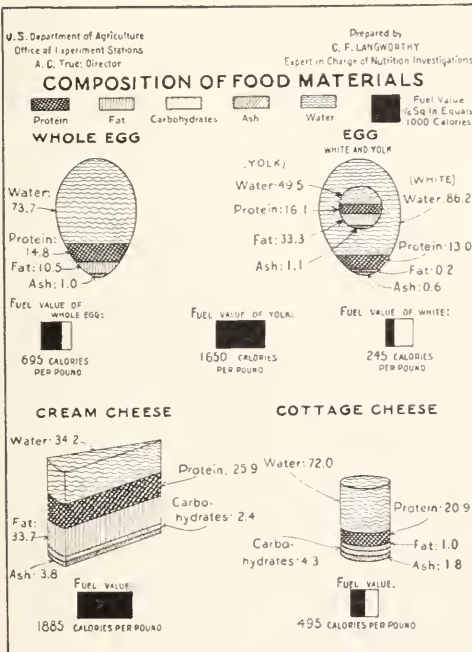 U.S. Department of Agriculture
Office of Experiment Stations
A. C. True: Director
Prepared by
C. F. LANGWORTHY
Expert in Charge of Nutrition Investigations
COMPOSITION OF FOOD MATERIALS
Protein
Fat
Carbohydrates
Ash
Water
Fuel Value
Sq. In Equals
1000 Calories
WHOLE EGG
Water:
73.7
Protein:
14.8
Fat: 10.5
Ash: 1.0
FUEL VALUE OF
WHOLE EGG:
695 CALORIES
PER POUND
EGG
WHITE AND YOLK
(YOLK)
Water: 49.5
Protein: 16.1
Fat: 33.3
Ash: 1.1
(WHITE)
Water: 86.2
Protein: 13.0
Fat: 0.2
Ash: 0.6
FUEL VALUE OF YOLK:
1650 CALORIES
PER POUND
FUEL VALUE OF WHITE:
245 CALORIES
PER POUND
CREAM CHEESE
Water: 34.2
Protein: 25.9
Carbo-
hydrates: 2.4
Fat:
33.7
Ash: 3.8
FUEL VALUE
1885 CALORIES PER POUND
COTTAGE CHEESE
Water: 72.0
Protein: 20.9
Fat: 1.0
Carbo-
hydrates: 4.3
Ash: 1.8
FUEL VALUE:
495 CALORIES PER POUND